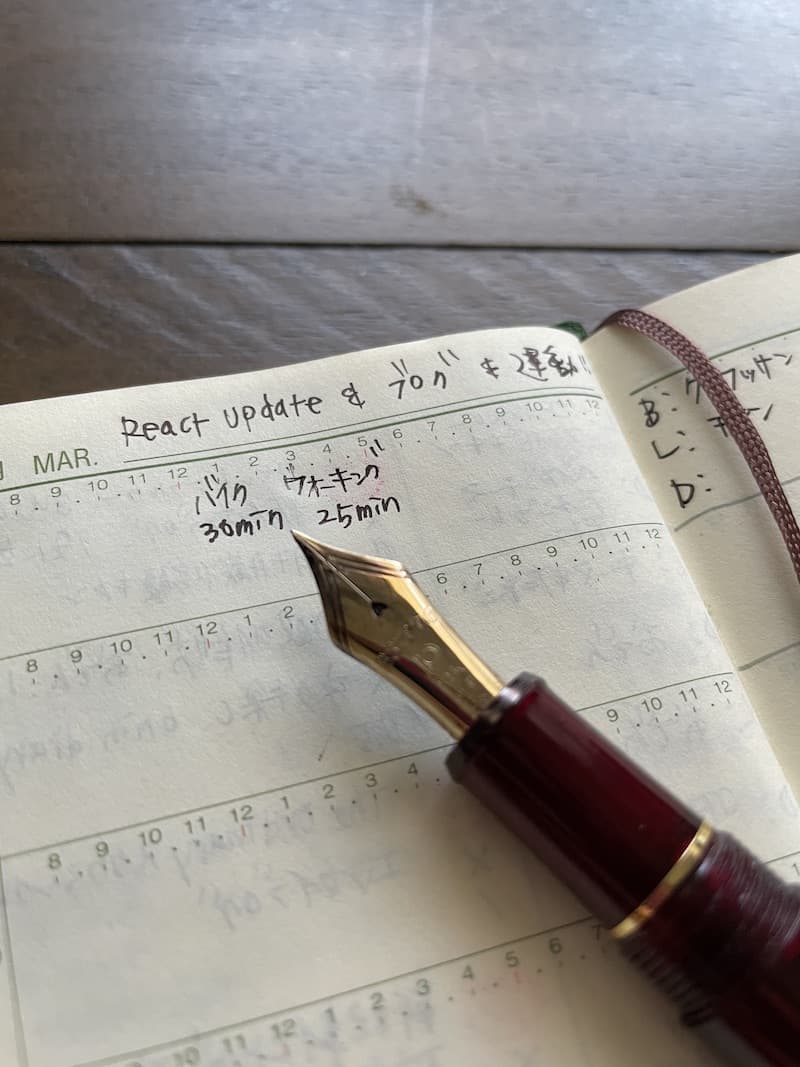 React update & ブログ & 運動!!
MAR.
8 9 10 11 12 1 2 3 4 5 6 7 8 9 10 11 12
バイク ウォーキング
30min 25min
8 9 10 11 12 1 2 6 7 8 9 10 11 12
8 9 10 11 12 1 2 3 4 9 10 11 12
10 11 12 1 2 3 4 5 6 7
B:
L:
D: